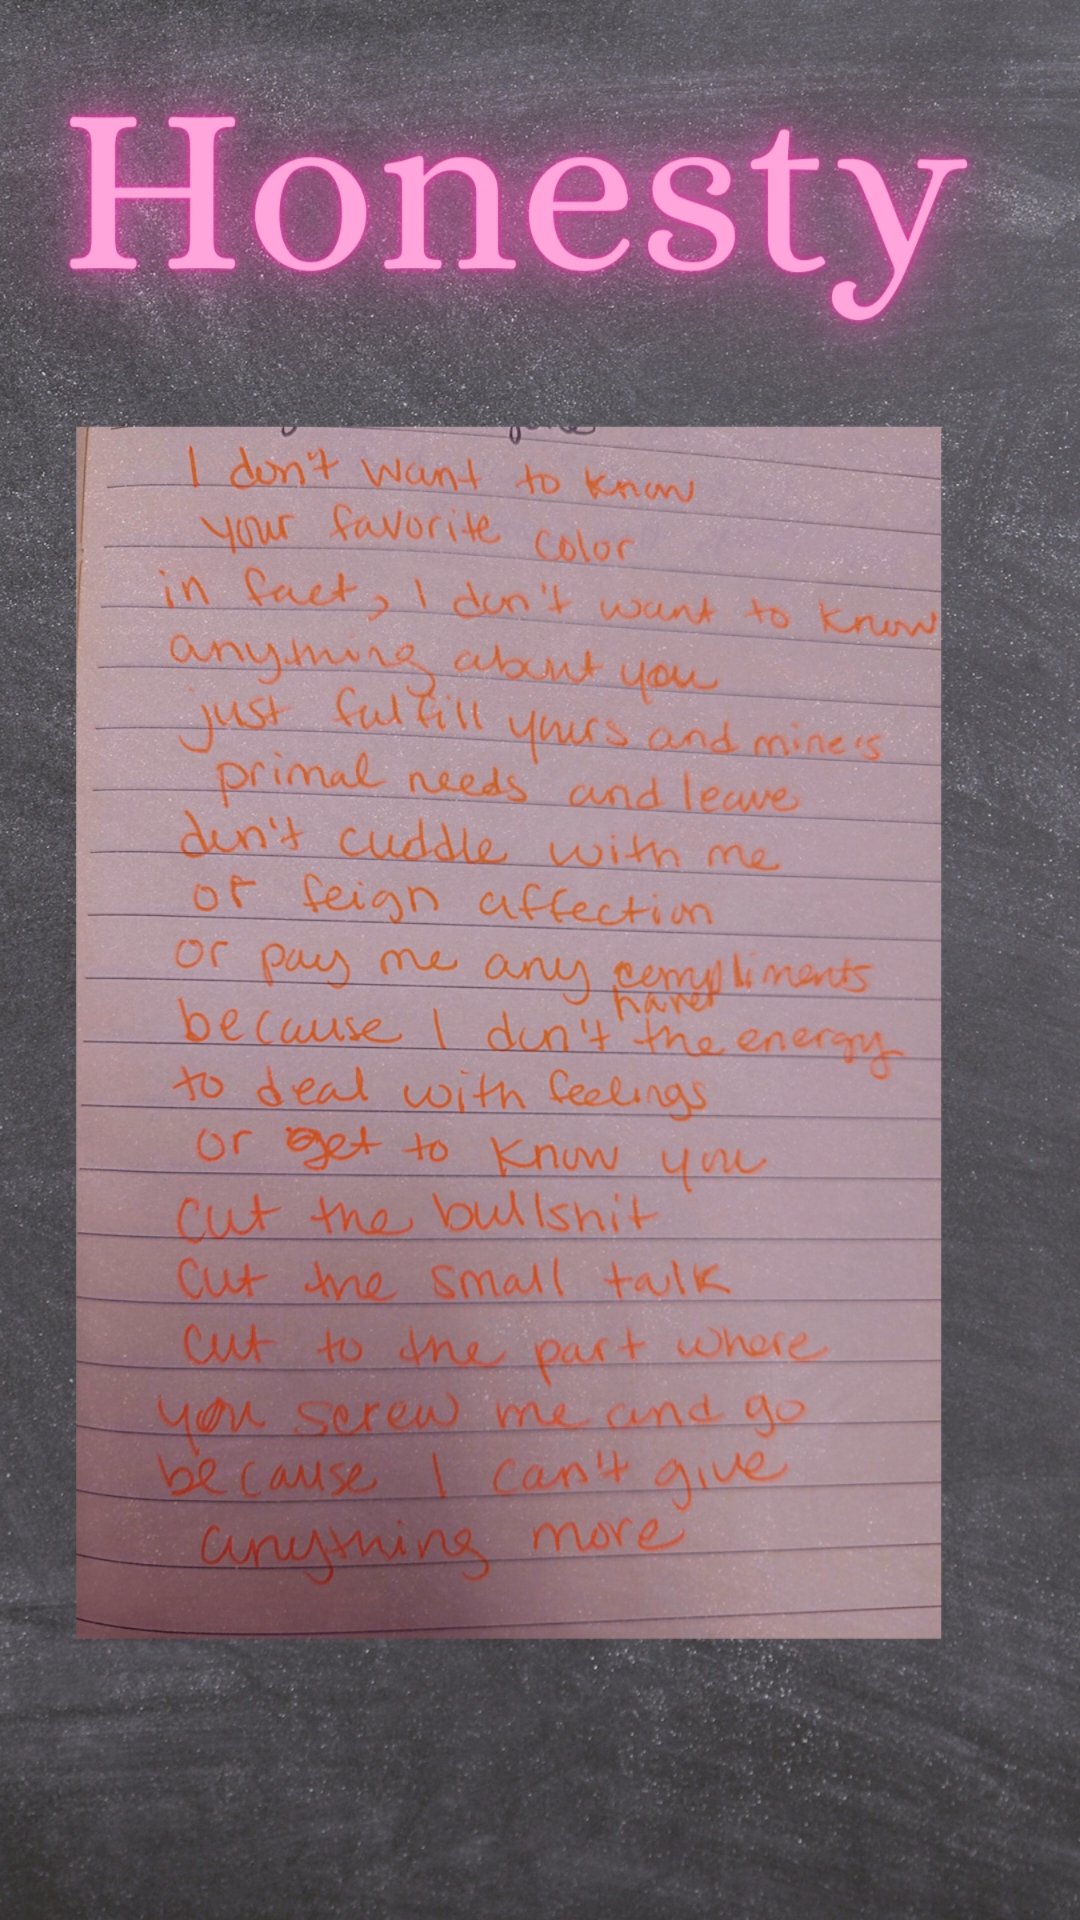 Honesty
I don't want to know
your favorite color
in fact, I don't want to know
anything about you
just fulfill yours and mine's
primal needs and leave
don't cuddle with me
or feign affection
or pay me any compliments
have
because I don't the energy
to deal with feelings
or get to know you
cut the bullshit
cut the small talk
cut to the part where
you screw me and go
because I can't give
anything more